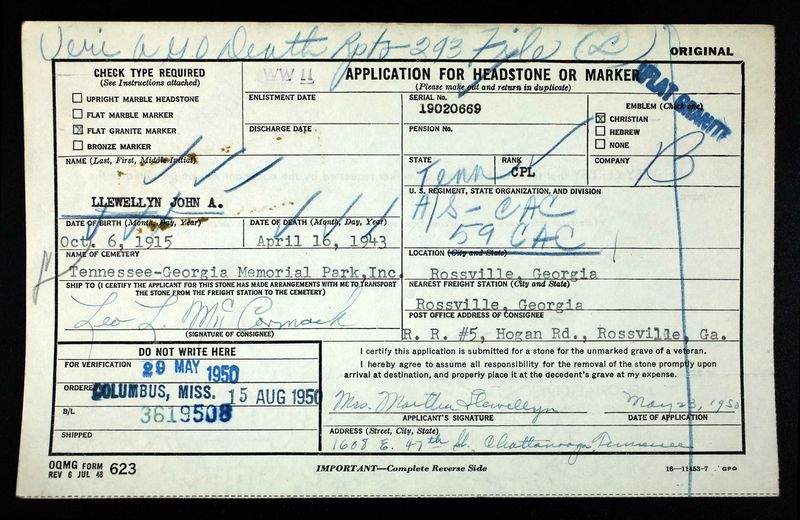 Veri A G O Death Rpts 293 File (L)
ORIGINAL
CHECK TYPE REQUIRED
(See Instructions attached)
UPRIGHT MARBLE HEADSTONE
FLAT MARBLE MARKER
FLAT GRANITE MARKER
BRONZE MARKER
WW II
APPLICATION FOR HEADSTONE OR MARKER
(Please make out and return in duplicate)
FLAT GRANITE
ENLISTMENT DATE
DISCHARGE DATE
SERIAL No.
19020669
PENSION No.
EMBLEM (Check one)
CHRISTIAN
HEBREW
NONE
NAME (Last, First, Middle Initial)
LLEWELLYN JOHN A.
STATE
Tenn
RANK
CPL
COMPANY
B
U. S. REGIMENT, STATE ORGANIZATION, AND DIVISION
A/S - CAC
59 CAC
DATE OF BIRTH (Month, Day, Year)
Oct. 6, 1915
DATE OF DEATH (Month, Day, Year)
April 16, 1943
NAME OF CEMETERY
Tennessee-Georgia Memorial Park,Inc.
LOCATION (City and State)
Rossville, Georgia
SHIP TO (I CERTIFY THE APPLICANT FOR THIS STONE HAS MADE ARRANGEMENTS WITH ME TO TRANSPORT
THE STONE FROM THE FREIGHT STATION TO THE CEMETERY)
Leo L. McCormack
(SIGNATURE OF CONSIGNEE)
NEAREST FREIGHT STATION (City and State)
Rossville, Georgia
POST OFFICE ADDRESS OF CONSIGNEE
R. R. #5, Hogan Rd., Rossville, Ga.
DO NOT WRITE HERE
FOR VERIFICATION
29 MAY 1950
ORDERED
COLUMBUS, MISS. 15 AUG 1950
B/L
3619508
SHIPPED
I certify this application is submitted for a stone for the unmarked grave of a veteran.
I hereby agree to assume all responsibility for the removal of the stone promptly upon
arrival at destination, and properly place it at the decedent's grave at my expense.
Mrs. Martha Llewellyn
May 23, 1950
APPLICANT'S SIGNATURE
DATE OF APPLICATION
ADDRESS (Street, City, State)
1608 E. 47th St. Chattanooga Tennessee
OQMG FORM
REV 6 JUL 48
623
IMPORTANT—Complete Reverse Side
16—11453-7 GPO